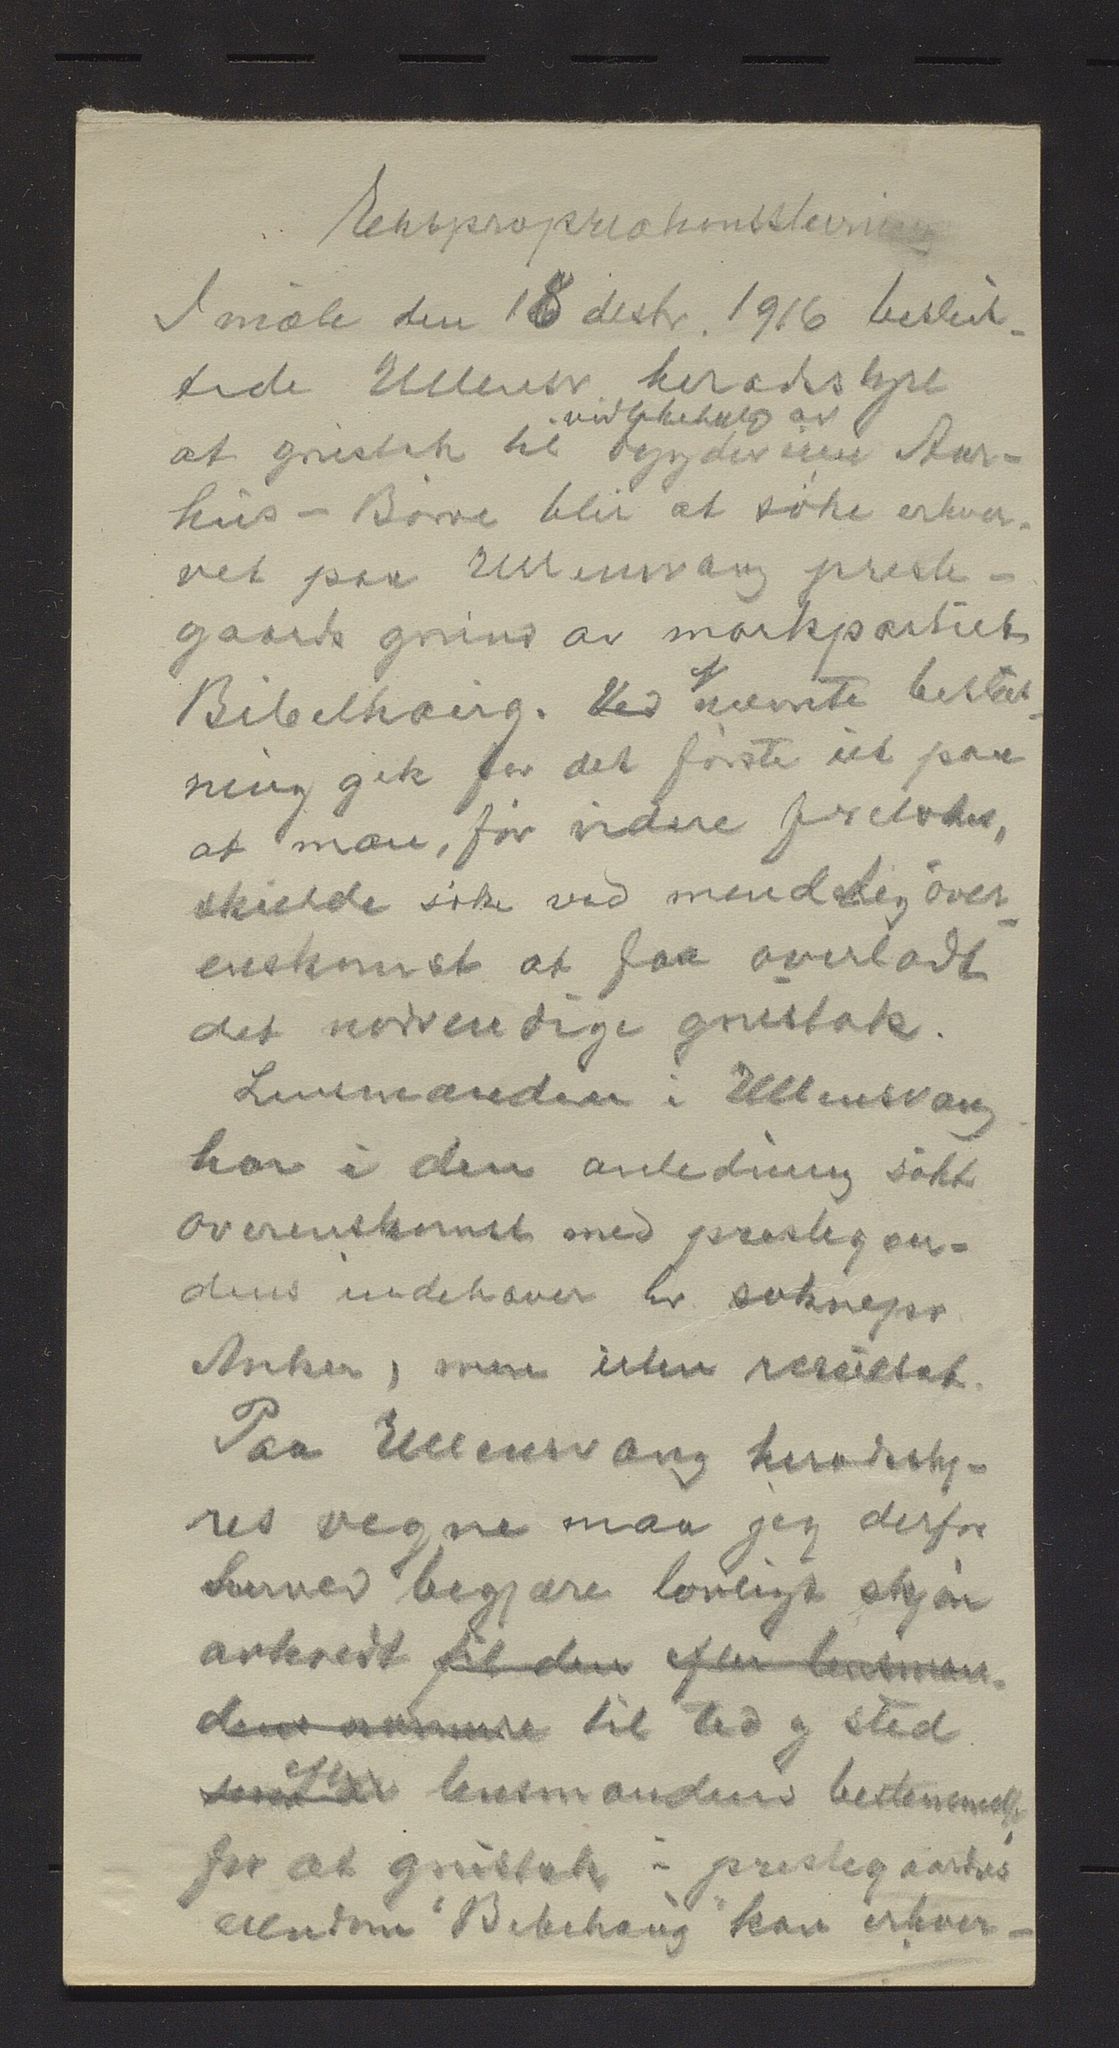 Ekspropriationsstevning
I møte den 18 decbr. 1916 beslut-
tede Ullensv. heradsstyre
at grustak til vedlikehold av bygdeveien Aar-
hus - Børve blir at søke erhver-
vet paa Ullensvang preste-
gaards grund av markpartiet
Bibelhaug. Ved nævnte beslut-
ning gik for det første ut paa
at man, før videre foretokes,
skulde søke ved mendelig over-
enskomst at faa overladt
det nødvendige grustak.
Lensmanden i Ullensvang
har i den anledning søkt
overenskomst med prestegaar-
dens indehaver hr. soknepr.
Anker, men uten resultat.
Paa Ullensvang heradsty-
res vegne maa jeg derfor
herved begjære lovligt skjøn
avholdt til den efter lensman-
dens nærmere til tid og sted
efter lensmandens bestemmelse
for at grustak i prestegaardens
eiendom "Bibehaug" kan erhver-